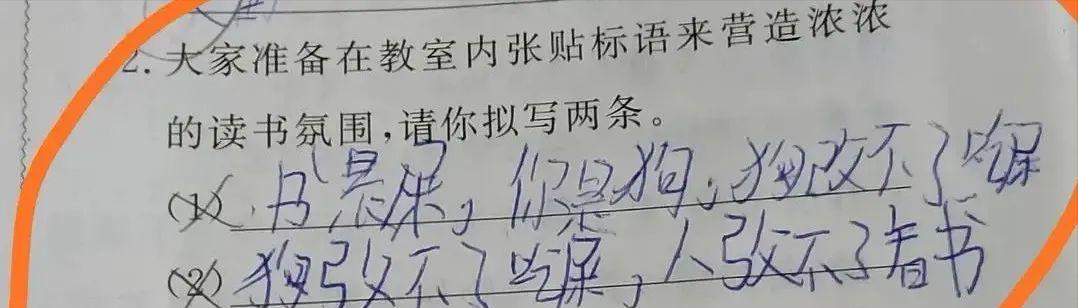 2. 大家准备在教室内张贴标语来营造浓浓
的读书氛围,请你拟写两条。
(1) 书是屎,你是狗,狗改不了吃屎
(2) 狗改不了吃屎,人改不了看书